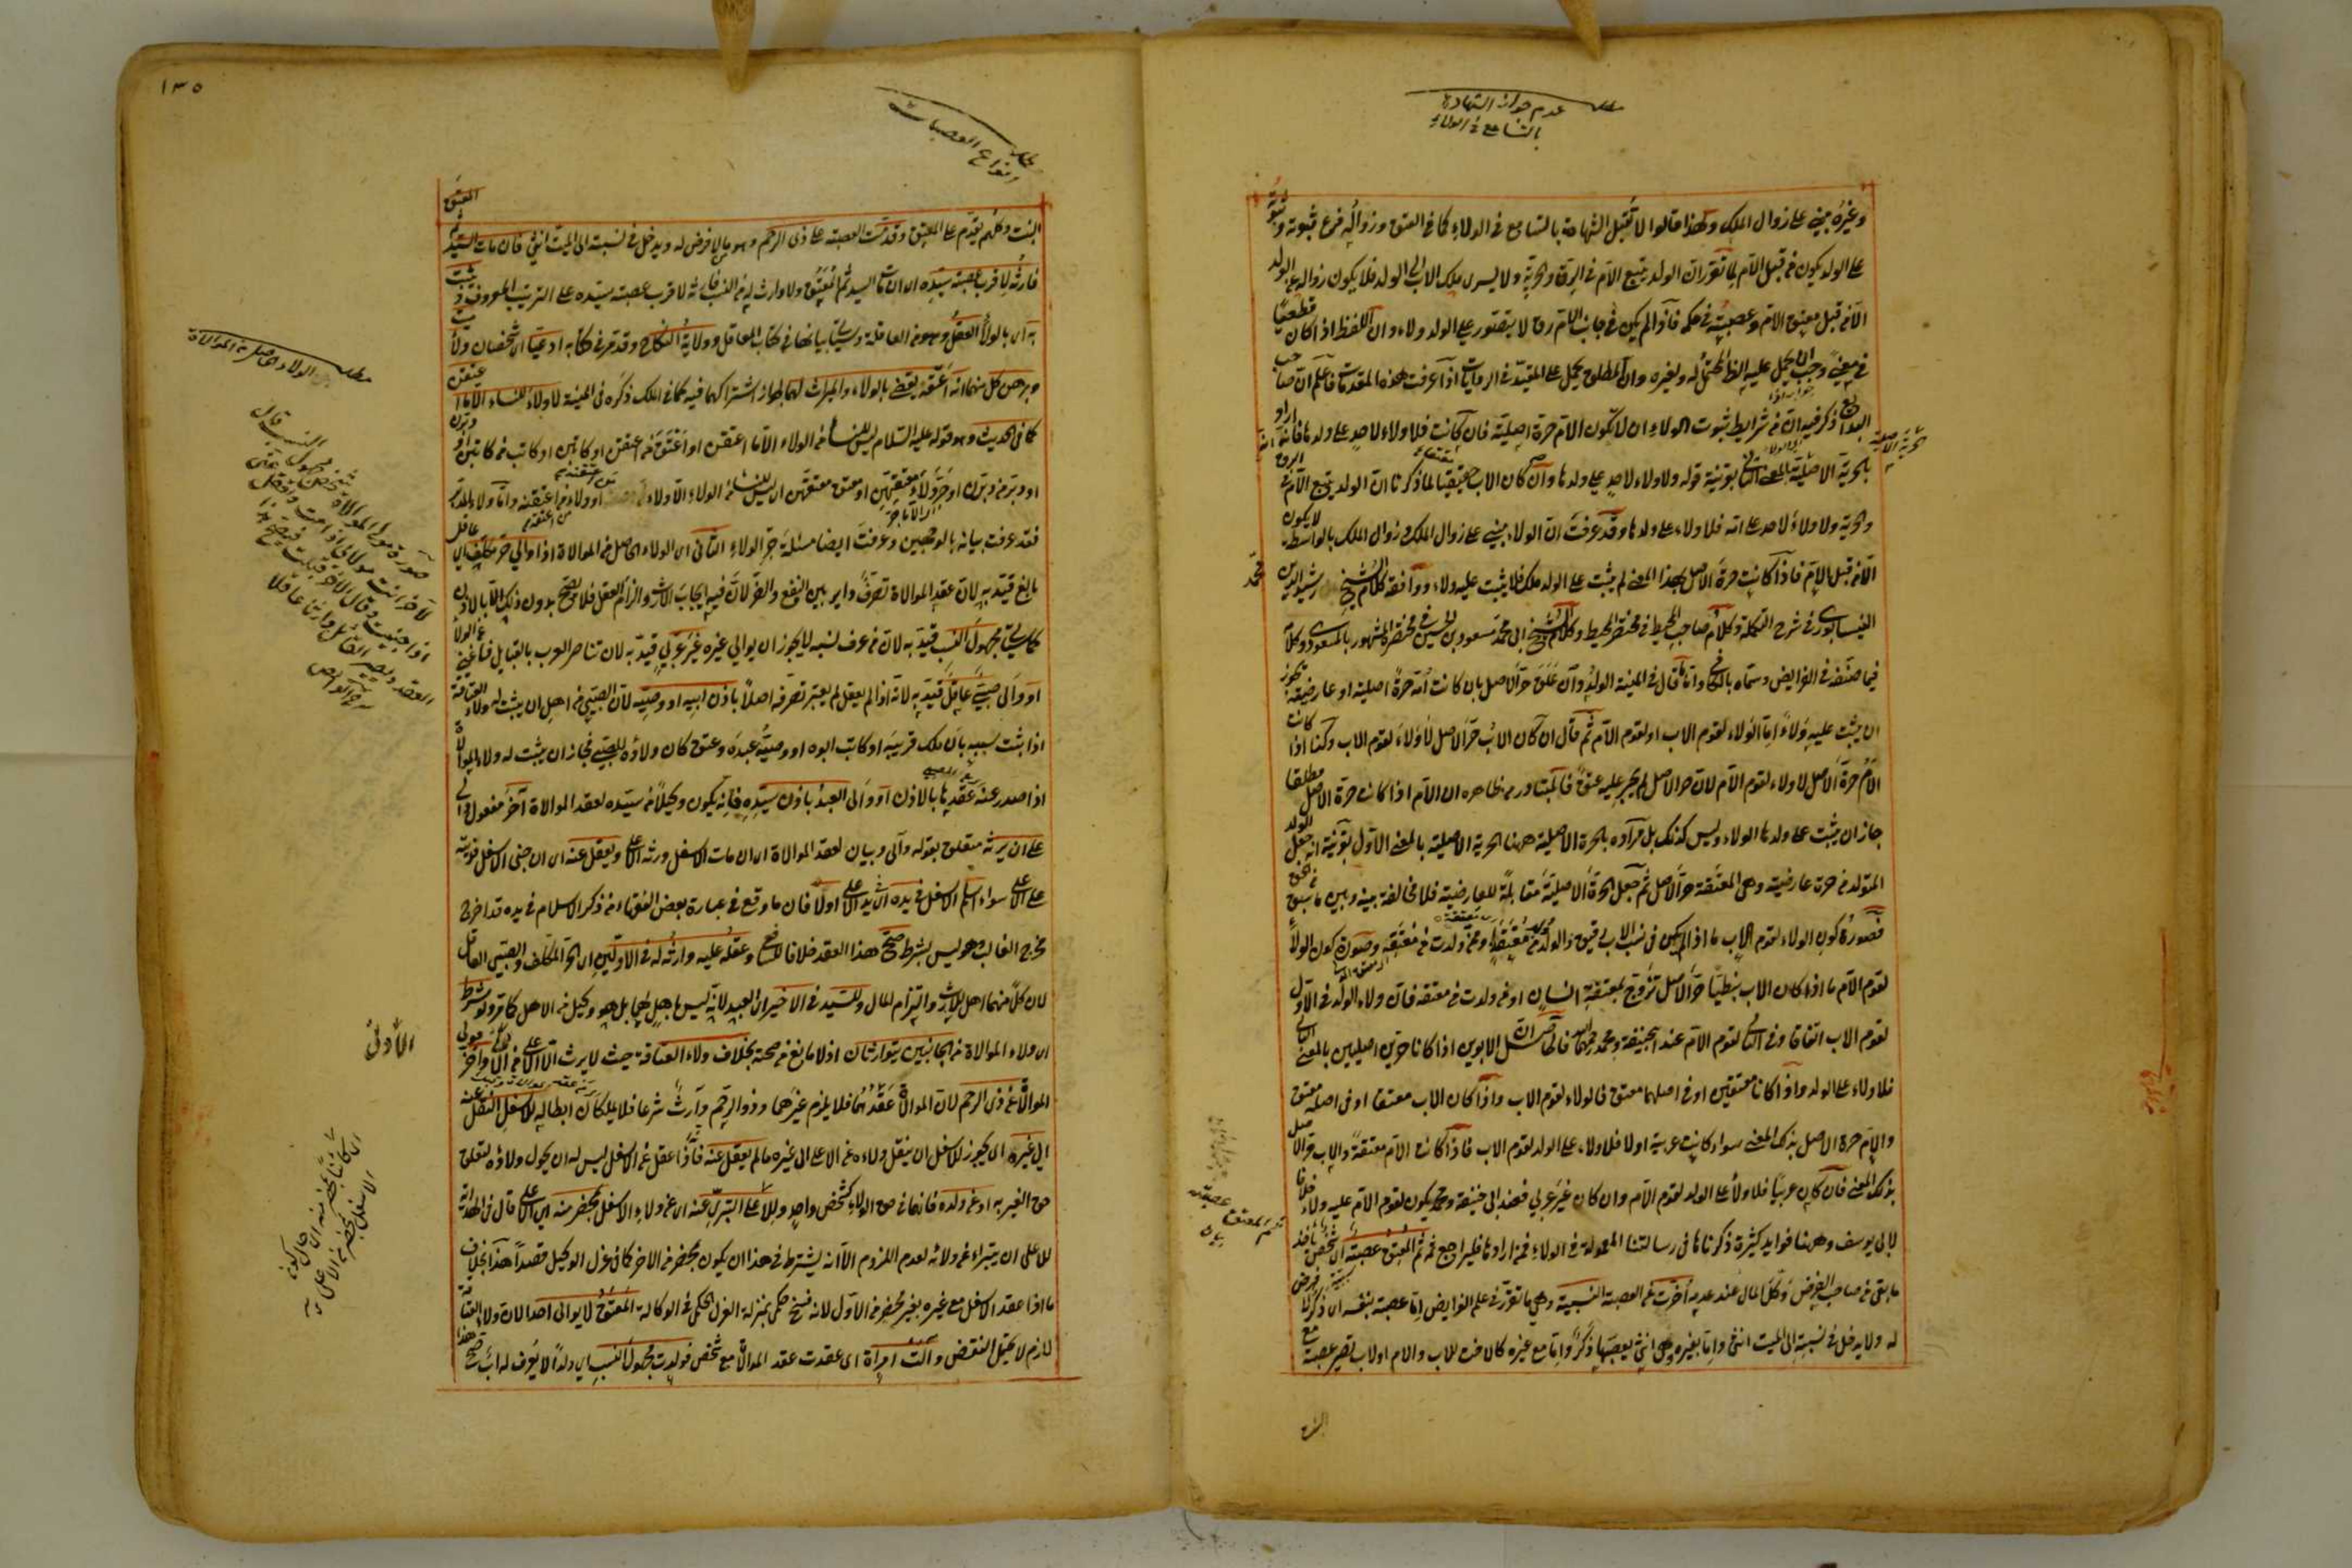 مطلب عدم جواز الشهادة
بالتسامع في الولاء
وغيره مبني على زوال الملك ولهذا قالوا لا تقبل الشهادة بالتسامع في الولاء كما في العتق وزواله فرع ثبوته وثبوته
على الولد يكون من قبل الأم لما تقرر ان الولد يتبع الأم في الرق والحرية ولا يسري ملك الاب الى الولد فلا يكون زواله عن الولد
الا من قبل معتق الام وعصبته في حكمه فاذا لم يكن في جانب الام رق لا يتصور على الولد ولاء وان اللفظ اذا كان قطعيا
في معنى وجب ان يحمل عليه اللفظ المحتمل له ولغيره وان المطلق يحمل على المقيد في الروايات اذا عرفت هذه المقدمات فاعلم ان صاحب
البدايع ذكر فيه ان من شرايط ثبوت الولاء ان لا تكون الام حرة اصلية فان كانت فلا ولاء لاحد على ولدها فانه اراد
بالحرية الاصلية المعنى الثاني بقرينة قوله ولا ولاء لاحد على ولدها وان كان الاب معتقا لما ذكرنا ان الولد يتبع الام في الرق
والحرية ولا ولاء لاحد على امه فلا ولاء على ولدها وقد عرفت ان الولاء مبني على زوال الملك وزوال الملك بالواسطة لا يكون
الا من قبل الام فاذا كانت حرة الاصل بهذا المعنى لم يثبت على الولد ملك فلا يثبت عليه ولاء ووافقه كلام الشيخ رشيد الدين محمد
النيسابوري في شرح التكملة وكلام صاحب المحيط في مختصر المحيط وكلام الشيخ ابي محمد مسعود بن الحسين في مختصره المشهور بالمسعودي وكلامه
فيما صنفه في الفرايض وسماه بالكافي واما ما قال في المنية الولد وان علق حر الاصل بان كانت امه حرة اصلية او عارضية يجوز
ان يثبت عليه ولاء اما الولاء لقوم الاب او لقوم الام ثم قال ان كان الاب حر الاصل لا ولاء لقوم الاب وكذا اذا كانت
الام حرة الاصل لا ولاء لقوم الام لان حر الاصل لم يجر عليه عتق فالمتبادر من ظاهره ان الام اذا كانت حرة الاصل مطلقا
جاز ان يثبت على ولدها الولاء وليس كذلك بل مراده بالحرة الاصلية ههنا الحرية الاصلية بالمعنى الاول بقرينة انه جعل الولد
المتولد من حرة عارضية وهي المعتقة حر الاصل ثم جعل الحرة الاصلية مقابلة للعارضية فلا مخالفة بينه وبين ما سبق
فصورة كون الولاء لقوم الاب ما اذا لم يكن في نسب الاب رقيق والولد من معتقة ومن ولدت من معتقة وصورة كون الولاء
لقوم الام ما اذا كان الاب نبطيا حر الاصل تزوج بمعتقة انسان او من ولدت من معتقة فان ولاء الولد في الاول
لقوم الاب اتفاقا وفي الثاني لقوم الام عند ابي حنيفة ومحمد رحمهما الله فالحاصل ان الابوين اذا كانا حرين اصليين بالمعنى الثاني
فلا ولاء على الولد واذا كانا معتقين او في اصلهما معتق فالولاء لقوم الاب واذا كان الاب معتقا او في اصله معتق
والام حرة الاصل بذلك المعنى سواء كانت عربية اولا فلا ولاء على الولد لقوم الاب فاذا كانت الام معتقة والاب حر الاصل
بذلك المعنى فان كان عربيا فلا ولاء على الولد لقوم الام وان كان غير عربي فعند ابي حنيفة ومحمد يكون لقوم الام عليه ولاء خلافا
لابي يوسف وههنا فوايد كثيرة ذكرناها في رسالتنا المعمولة في الولاء فمن ارادها فليراجع ثمه ثم المعتق عصبة اي شخص يأخذ
ما بقي من صاحب الفرض وكل المال عند عدمه اخرت عن العصبة النسبية وهي ما تقرر في علم الفرايض اما عصبة بنفسه اي ذكر لا فرض
له ولا يدخل في نسبته الى الميت انثى واما بغيره وهي انثى يعصبها ذكر واما مع غيره كالاخت للاب والام او لاب تصير عصبة مع
البنت
١٣٥
مطلب
انواع العصبات
البنت وكلهم يقدم على المعتق وقدمت العصبة على ذي الرحم وهو من لا فرض له ويدخل في نسبته الى الميت انثى فان مات السيد ثم المعتق
فارثه لاقرب عصبة سيده اي ان مات السيد ثم المعتق ولا وارث له من النسب فارثه لاقرب عصبة سيده على الترتيب المعروف ويثبت
به اي بالولاء العقل وهو من العاقلة وسيأتي بيانها في كتاب المعاقل وولاية النكاح وقد مر في كتابه ادعيا اي شخصان ولاء ميت
وبرهن كل منهما انه اعتقه يقضى بالولاء والميراث لهما لجواز اشتراكهما فيه كما في الملك ذكره في المنية لا ولاء للنساء الا ما اعتقن
كما في الحديث وهو قوله عليه السلام ليس للنساء من الولاء الا ما اعتقن او اعتق من اعتقن او كاتبن او كاتب من كاتبن او دبرن
او دبر من دبرن او جر ولاء معتقهن او معتق معتقهن اي ليس للنساء من الولاء الا ولاء من اعتقنه او ولاء من اعتقه من اعتقنه واما ولاء المدبر
فقد عرفت بيانه بالوجهين وعرفت ايضا مسئلة جر الولاء الثاني اي الولاء الحاصل من الموالاة اذا والى حر مكلف اي عاقل
بالغ قيد به لان عقد الموالاة تصرف داير بين النفع والضر لان فيه ايجاب الارث والزام العقل فلا يصح بدون ذلك الا بالاذن
كما سيأتي مجهول النسب قيد به لان من عرف نسبه لا يجوز ان يوالي غيره غير عربي قيد به لان تناصر العرب بالقبايل فاغنى عن الولاء
او والى صبي عاقل قيد به لانه اذا لم يعقل لم يعتبر تصرفه اصلا باذن ابيه او وصيه لان الصبي من اهل ان يثبت له ولاء العتاقة
اذا ثبت سببه بان ملك قريبه او كاتب ابوه او وصيه عبده وعتق كان ولاؤه للصبي فجاز ان يثبت له ولاء الموالاة
اذا صدر عنه عقدها بالاذن او والى العبد باذن سيده فانه يكون وكيلا من سيده لعقد الموالاة آخر مفعول والى
على ان يرثه متعلق بقوله والى وبيان لعقد الموالاة اي ان مات الاسفل ورثه الاعلى ويعقل عنه اي ان جنى الاسفل فديته
على الاعلى سواء اسلم الاسفل في يده اي يد الاعلى اولا فان ما وقع في عبارة بعض الفقهاء من ذكر الاسلام في يده قد اخرج
مخرج الغالب وهو ليس بشرط صح هذا العقد خلافا للشافعي وعقله عليه وارثه له في الاولين اي الحر المكلف والصبي العاقل
لان كلا منهما اهل للارث والتزام المال وللسيد في الاخير اي العبد لانه ليس باهل لهما بل هو وكيل من الاهل كما مر ولو شرط
اي ولاء الموالاة من الجانبين يتوارثان اذ لا مانع من صحته بخلاف ولاء العتاقة حيث لا يرث الا الاعلى من الاسفل واخر مولى
الموالاة عن ذي الرحم لان الموالاة عقدهما فلا يلزم غيرهما وذو الرحم وارث شرعا فلا يملكان ابطاله للاسفل النقل عنه
الى غيره اي يجوز للاسفل ان ينقل ولاءه عن الاعلى الى غيره ما لم يعقل عنه فاذا عقل عن الاسفل ليس له ان يحول ولاؤه لتعلق
حق الغير به او عن ولده فانهما في حق الولاء كشخص واحد وللاعلى التبري عنه اي عن ولاء الاسفل بمحضر منه اي الاعلى قال في الهداية
للاعلى ان يتبرأ عن ولائه لعدم اللزوم الا انه يشترط في هذا ان يكون بمحضر من الاخر كما في عزل الوكيل قصدا هذا بخلاف
ما اذا عقد الاسفل مع غيره بغير محضر من الاول لانه فسخ حكمي بمنزلة العزل الحكمي في الوكالة المعتق لا يوالي احدا لان ولاء العتاقة
لازم لا يحتمل النقض والت امرأة اي عقدت عقد الموالاة مع شخص فولدت مجهول النسب اي ولدا لا يعرف له اب صح هذا
مطلب الولاء الحاصلة من الموالاة
صورة مولى الموالاة شخص مجهول النسب قال
لآخر انت مولاي اذا مت وتعقل عني
اذا جنيت وقال الآخر قبلت فيصح هذا
العقد ويصير القائل وارثا عاقلا
الاولى